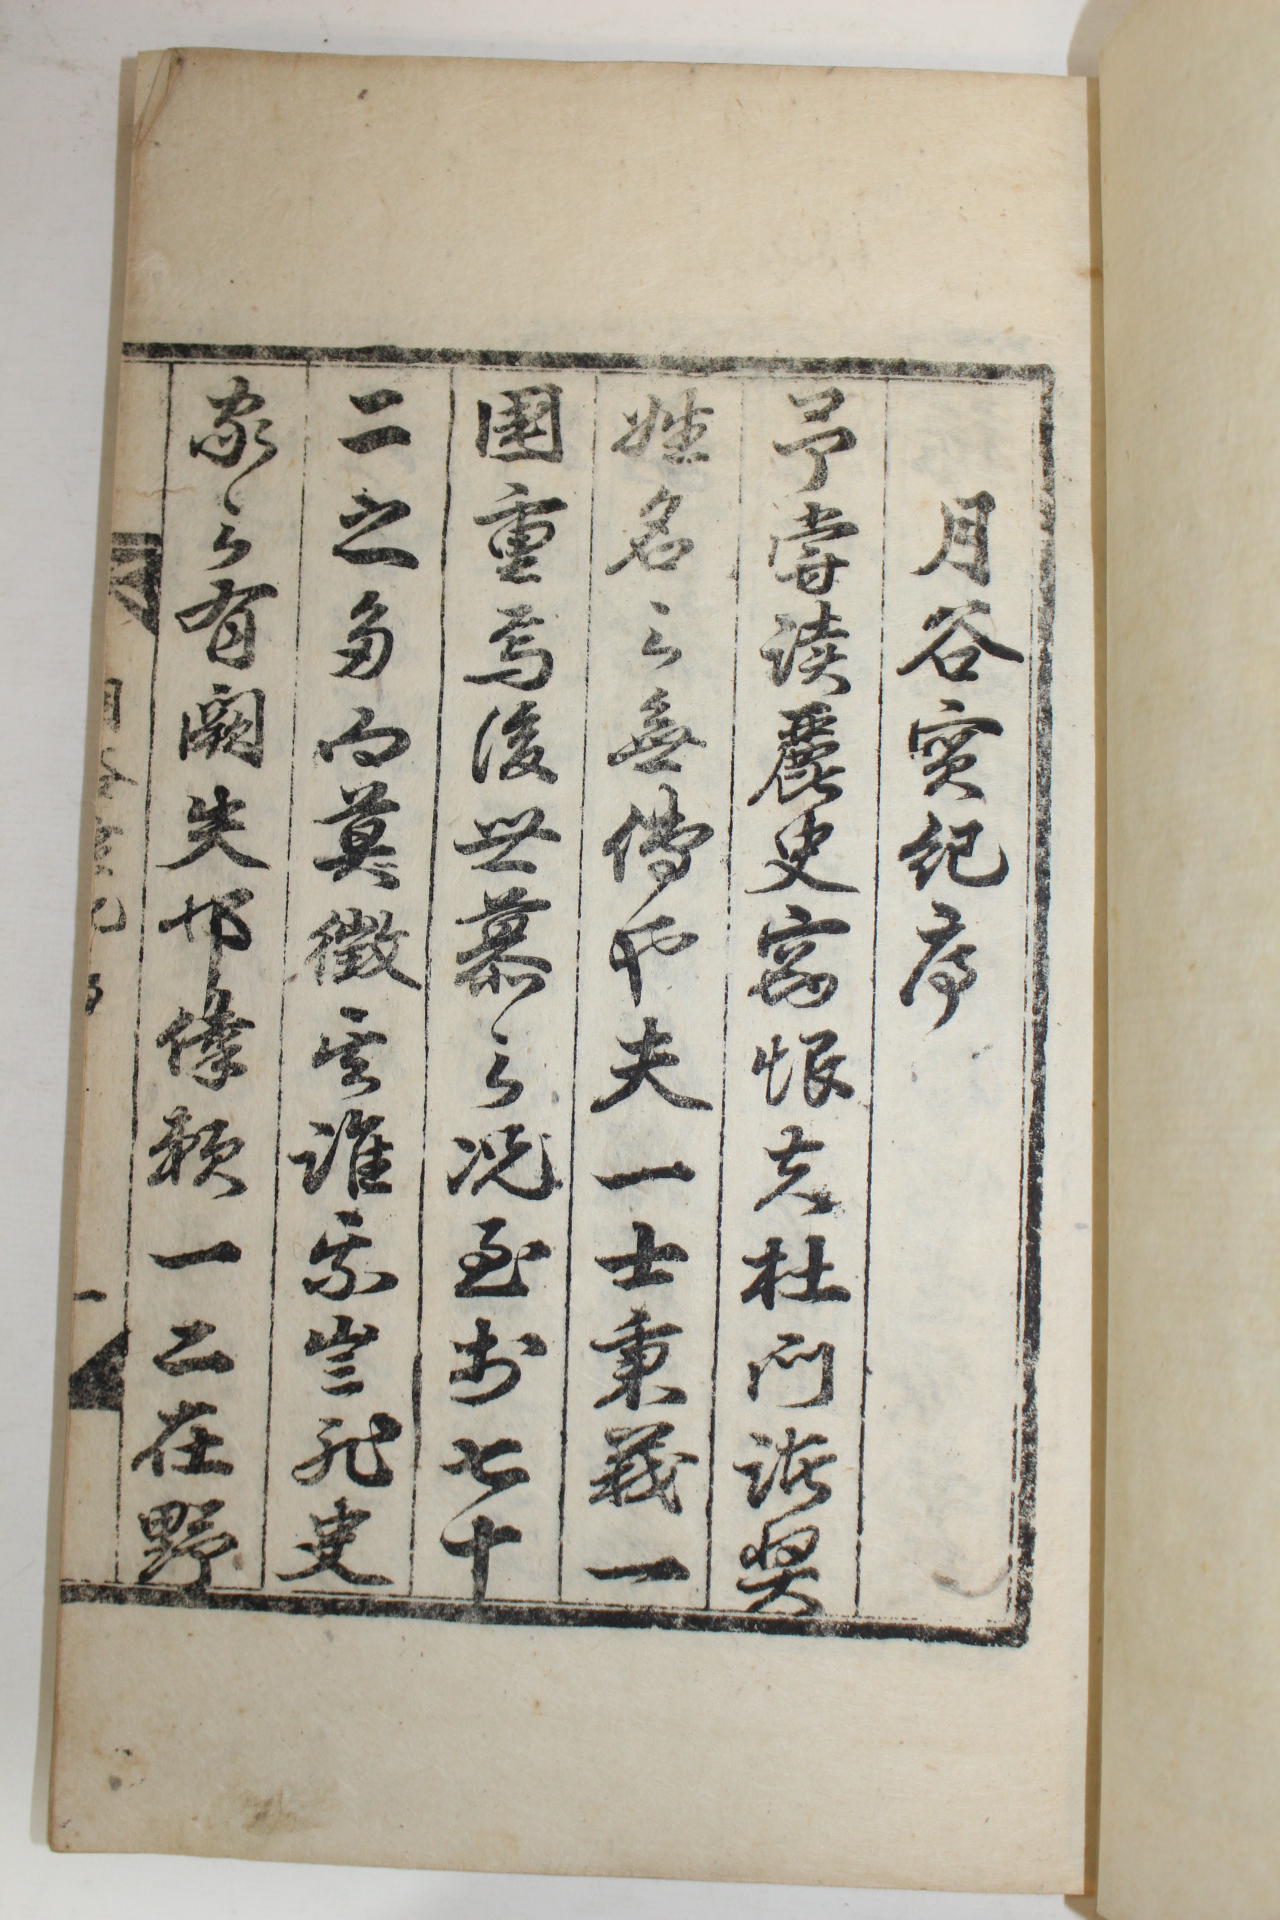 月谷實紀序
予嘗讀麗史竊恨夫杜門諸賢
姓名之無傳也夫一士秉義一
國重焉後世慕之況至於七十
二之多而莫徵其誰某豈非史
家之有闕失耶僅賴一二在野